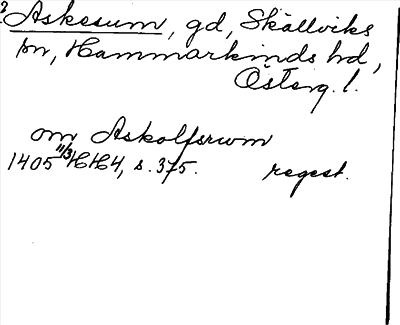 2 Askesum, gd, Skällviks
sn, Hammarkinds hd,
Österg. l.
om Askolfsrwm
1405 11/3 HH4, s. 375. regest.